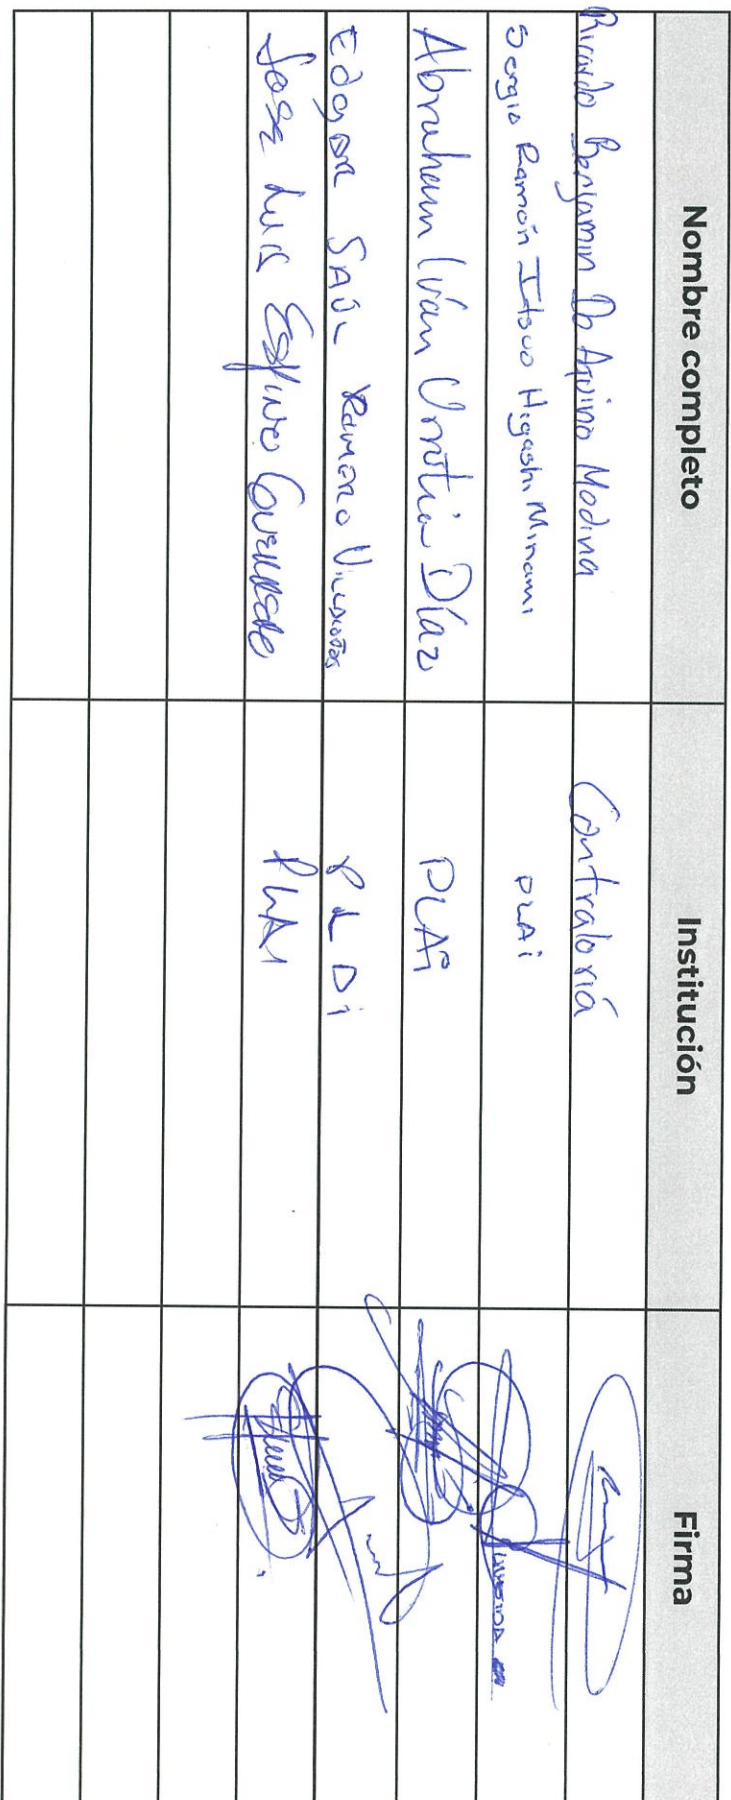 Nombre completo Institución Firma
Ricardo Benjamin De Aquino Medina Contraloría
Sergio Ramón Itsuo Higashi Minami PLAi
Abraham Iván Urrutia Díaz PLAi
Edgar Saúl Romero PLDi
Jose Luis Espino PLAi